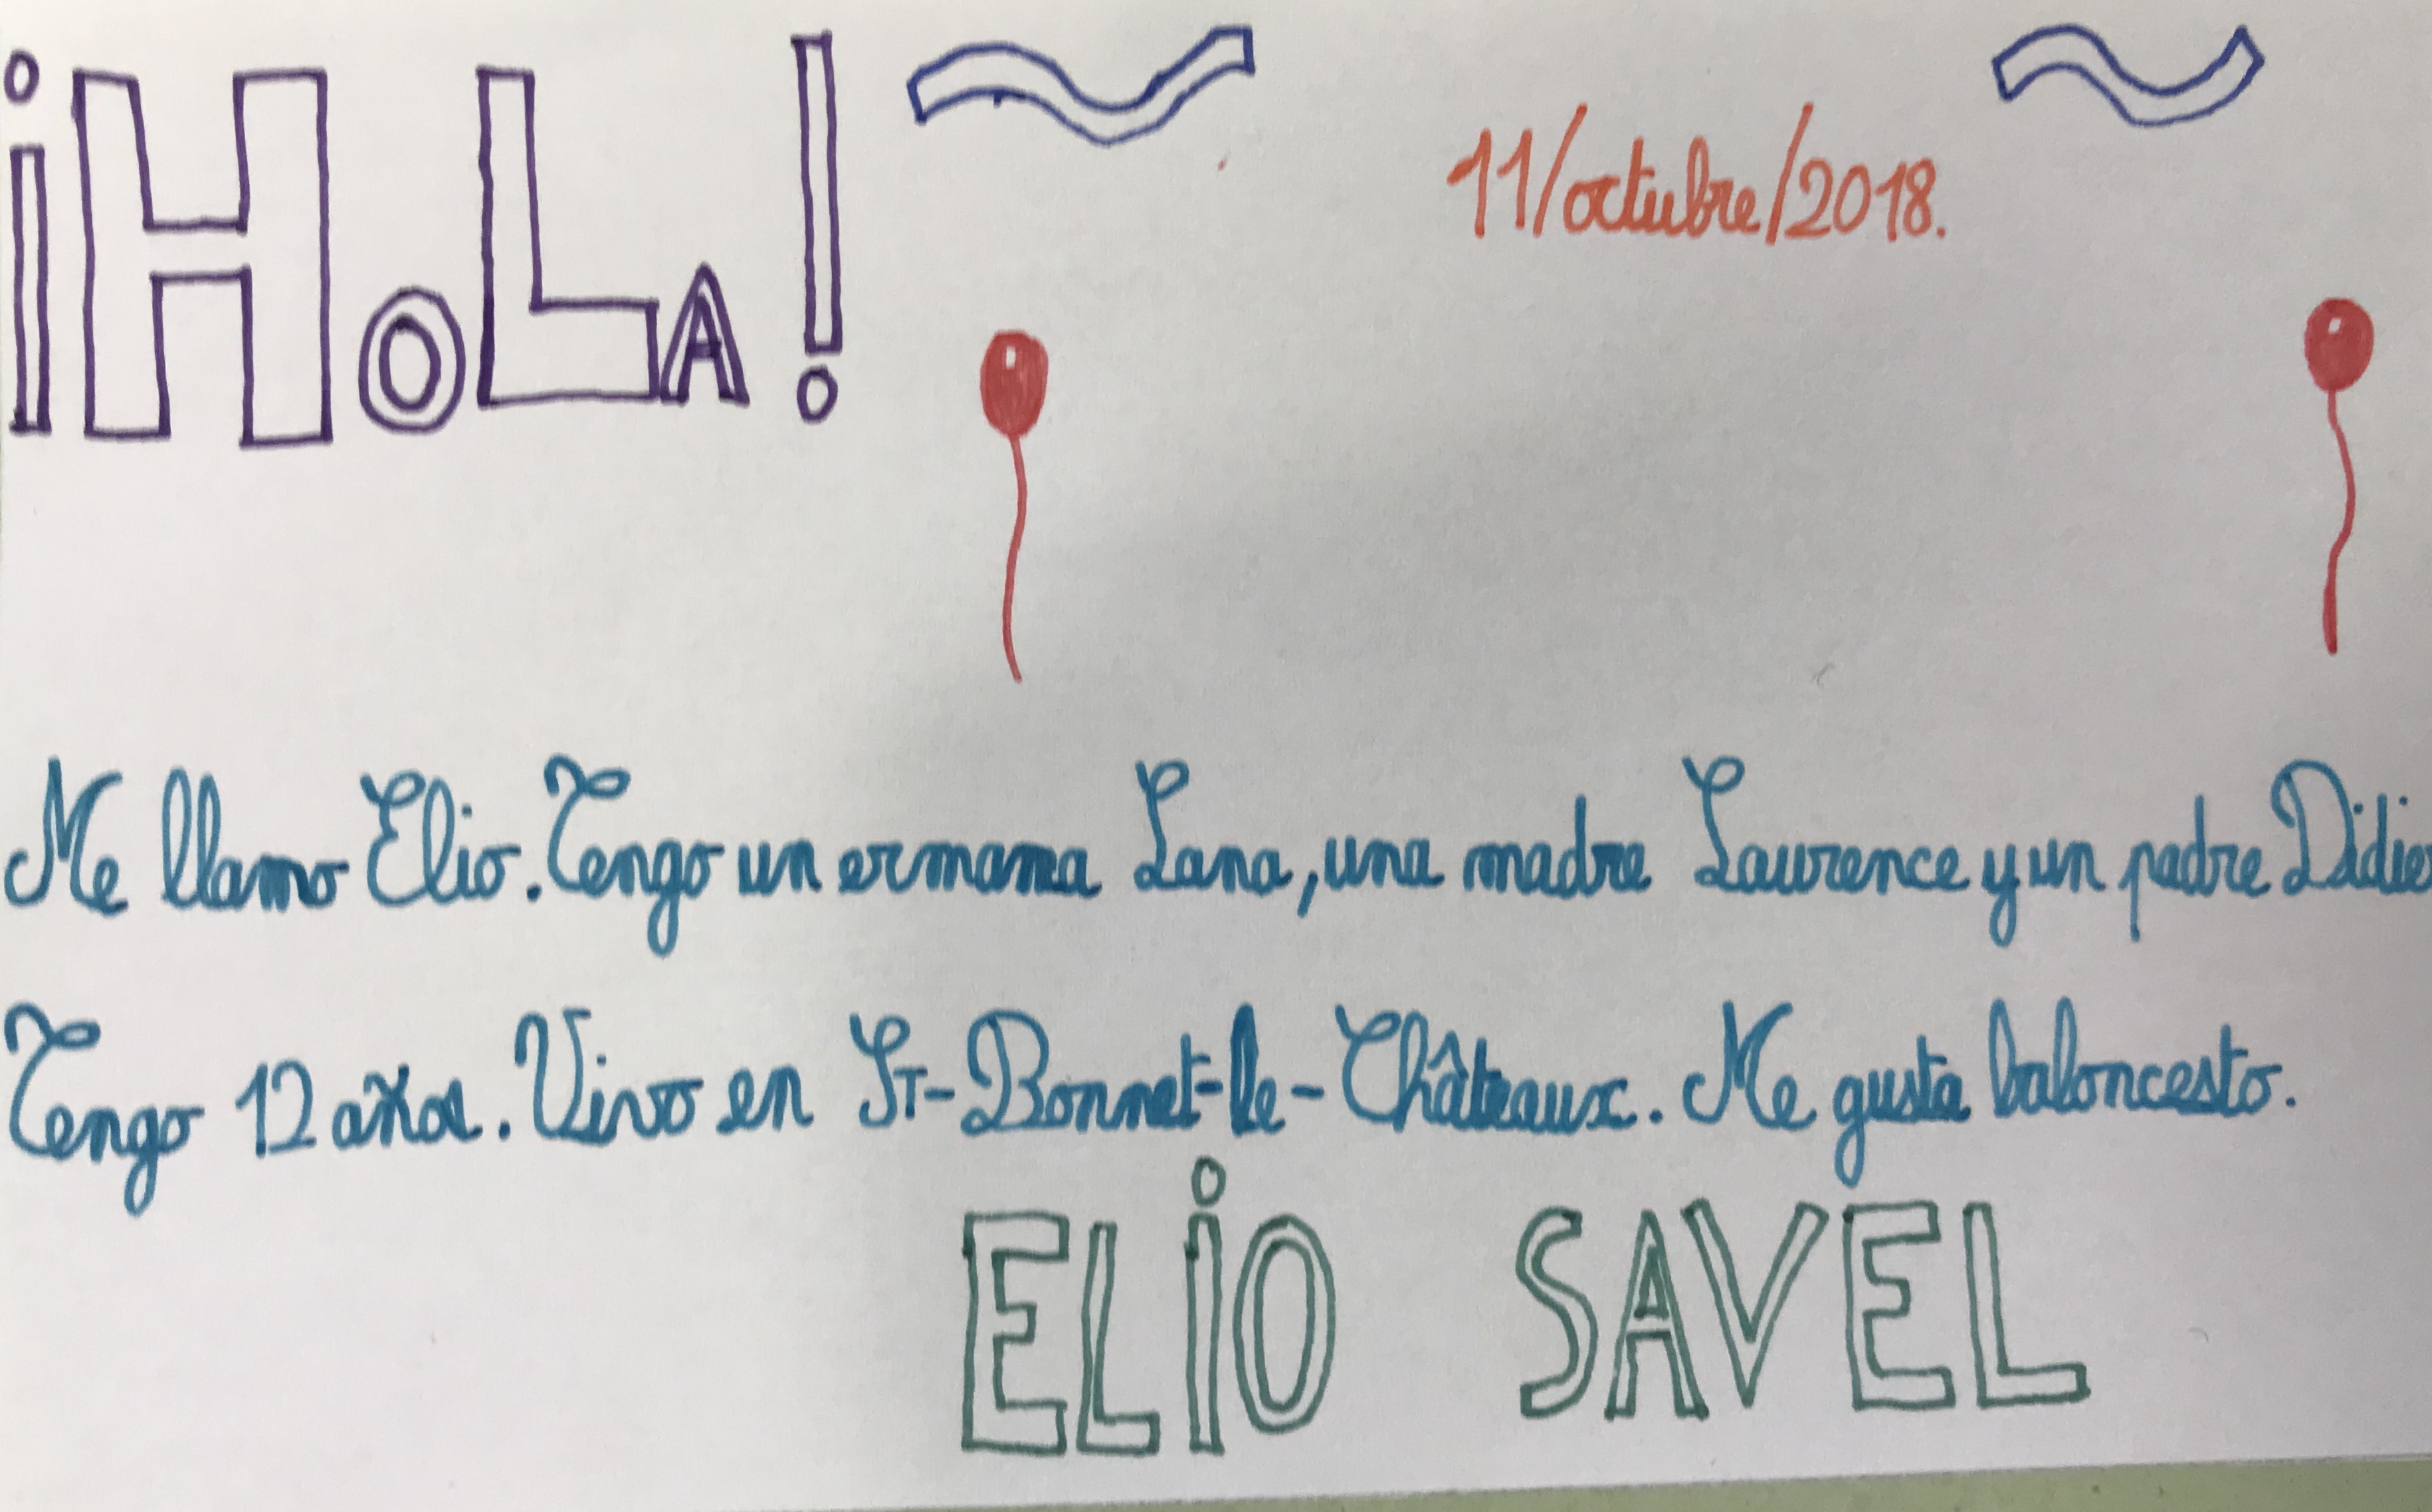 ¡HOLA!
11/octubre/2018.
Me llamo Elio. Tengo un ermana Lana, una madre Laurence y un padre Didier
Tengo 12 años. Vivo en ST-Bonnet-le-Châteaux. Me gusta baloncesto.
ELIO SAVEL